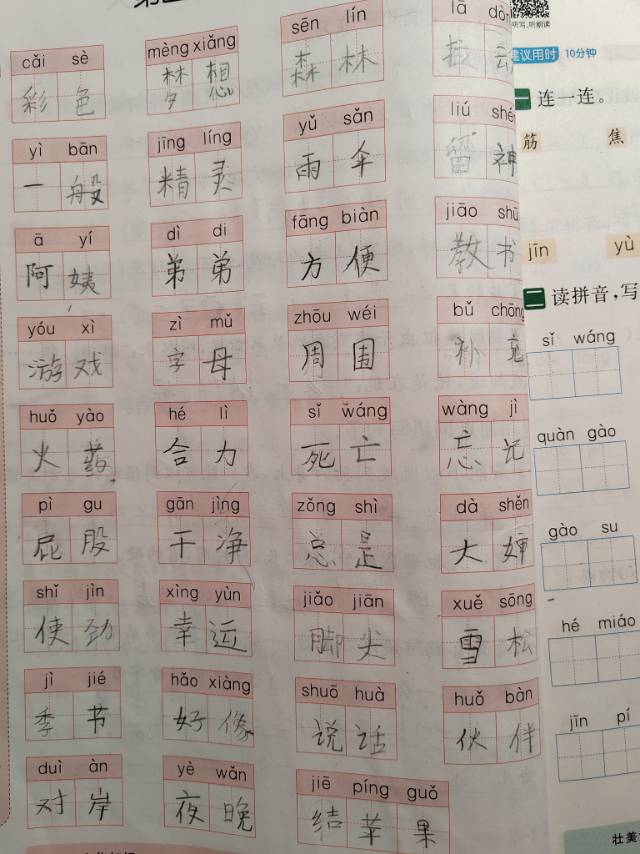 cǎi sè mèng xiǎng sēn lín lā
彩色 梦想 森林
听写，听朗读
建议用时 10分钟
一 连一连。
yì bān jīng líng yǔ sǎn liú shé
一般 精灵 雨伞 留神
筋 焦
ā yí dì di fāng biàn jiāo shū
阿姨 弟弟 方便 教书
jīn yù
二 读拼音，写
yóu xì zì mǔ zhōu wéi bǔ chōng
游戏 字母 周围 补充
sǐ wáng
huǒ yào hé lì sǐ wáng wàng jì
火药 合力 死亡 忘记
quàn gào
pì gu gān jìng zǒng shì dà shěn
屁股 干净 总是 大婶
gào su
shǐ jìn xìng yùn jiǎo jiān xuě sōng
使劲 幸运 脚尖 雪松
hé miáo
jì jié hǎo xiàng shuō huà huǒ bàn
季节 好像 说话 伙伴
jīn pí
duì àn yè wǎn jiē píng guǒ
对岸 夜晚 结苹果
壮美